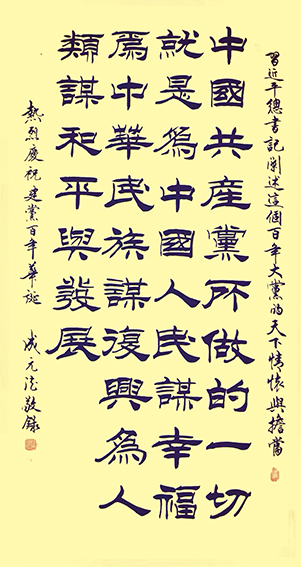 習近平總書記闡述這個百年大黨的天下情懷與擔當
中國共產黨所做的一切
就是為中國人民謀幸福
為中華民族謀復興為人
類謀和平與發展
熱烈慶祝建黨百年華誕
成元法敬錄